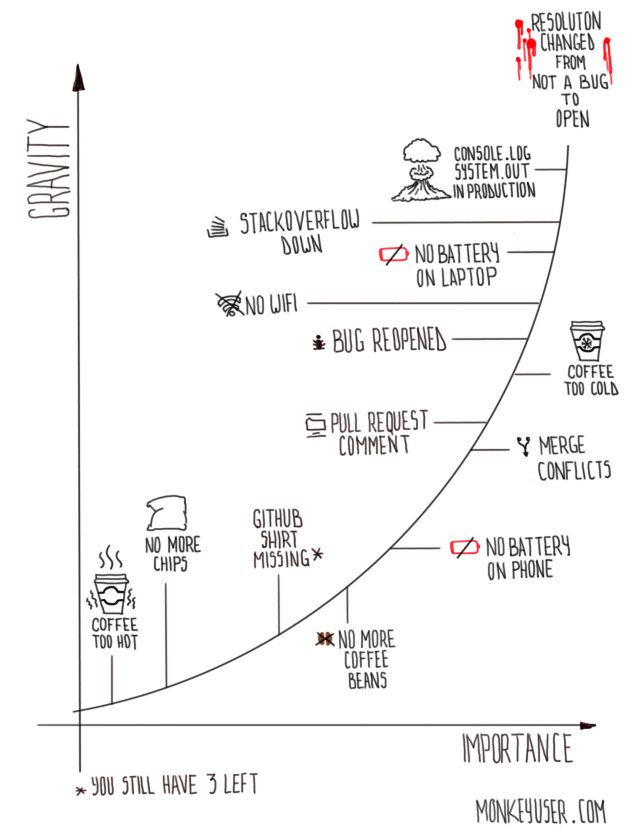 RESOLUTON
CHANGED
FROM
NOT A BUG
TO
OPEN
GRAVITY
CONSOLE.LOG
SYSTEM.OUT
IN PRODUCTION
STACKOVERFLOW
DOWN
NO BATTERY
ON LAPTOP
NO WIFI
BUG REOPENED
COFFEE
TOO COLD
PULL REQUEST
COMMENT
MERGE
CONFLICTS
NO BATTERY
ON PHONE
GITHUB
SHIRT
MISSING*
NO MORE
CHIPS
COFFEE
TOO HOT
NO MORE
COFFEE
BEANS
IMPORTANCE
* YOU STILL HAVE 3 LEFT
MONKEYUSER.COM